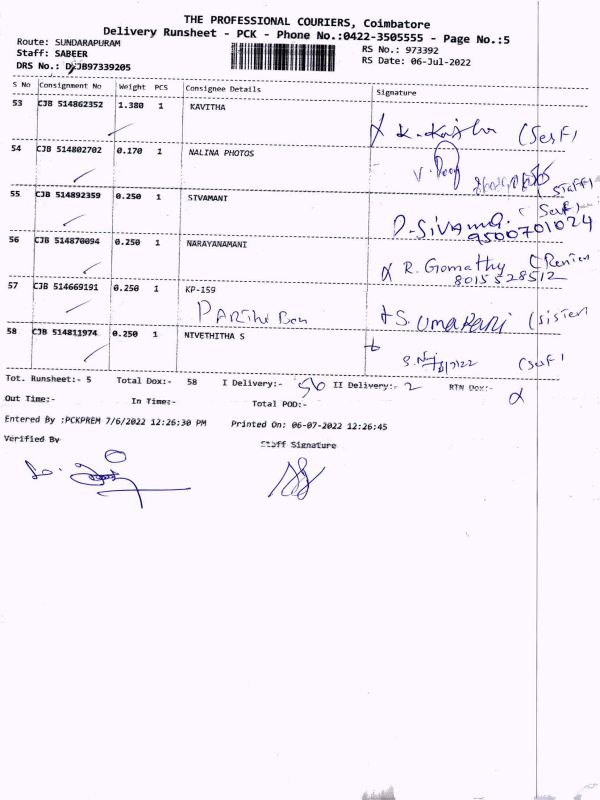 THE PROFESSIONAL COURIERS, Coimbatore
Delivery Runsheet - PCK - Phone No.:0422-3505555 - Page No.:5
Route: SUNDARAPURAM
RS No.: 973392
Staff: SABEER
RS Date: 06-Jul-2022
DRS No.: DXJB97339205
S No Consignment No Weight PCS Consignee Details Signature
53 CJB 514862352 1.380 1 KAVITHA
(Self)
54 CJB 514802702 0.170 1 NALINA PHOTOS
(Staff)
55 CJB 514892359 0.250 1 SIVAMANI
(Self)
9500701024
56 CJB 514870094 0.250 1 NARAYANAMANI
R. Gomathy
8015528512
57 CJB 514669191 0.250 1 KP-159
S. Umarani (Sister)
58 CJB 514811974 0.250 1 NIVETHITHA S
(Self)
Tot. Runsheet:- 5 Total Dox:- 58 I Delivery:- 56 II Delivery:- 2 RTN Dox:-
Out Time:- In Time:- Total POD:-
Entered By :PCKPREM 7/6/2022 12:26:30 PM Printed On: 06-07-2022 12:26:45
Verified By Staff Signature